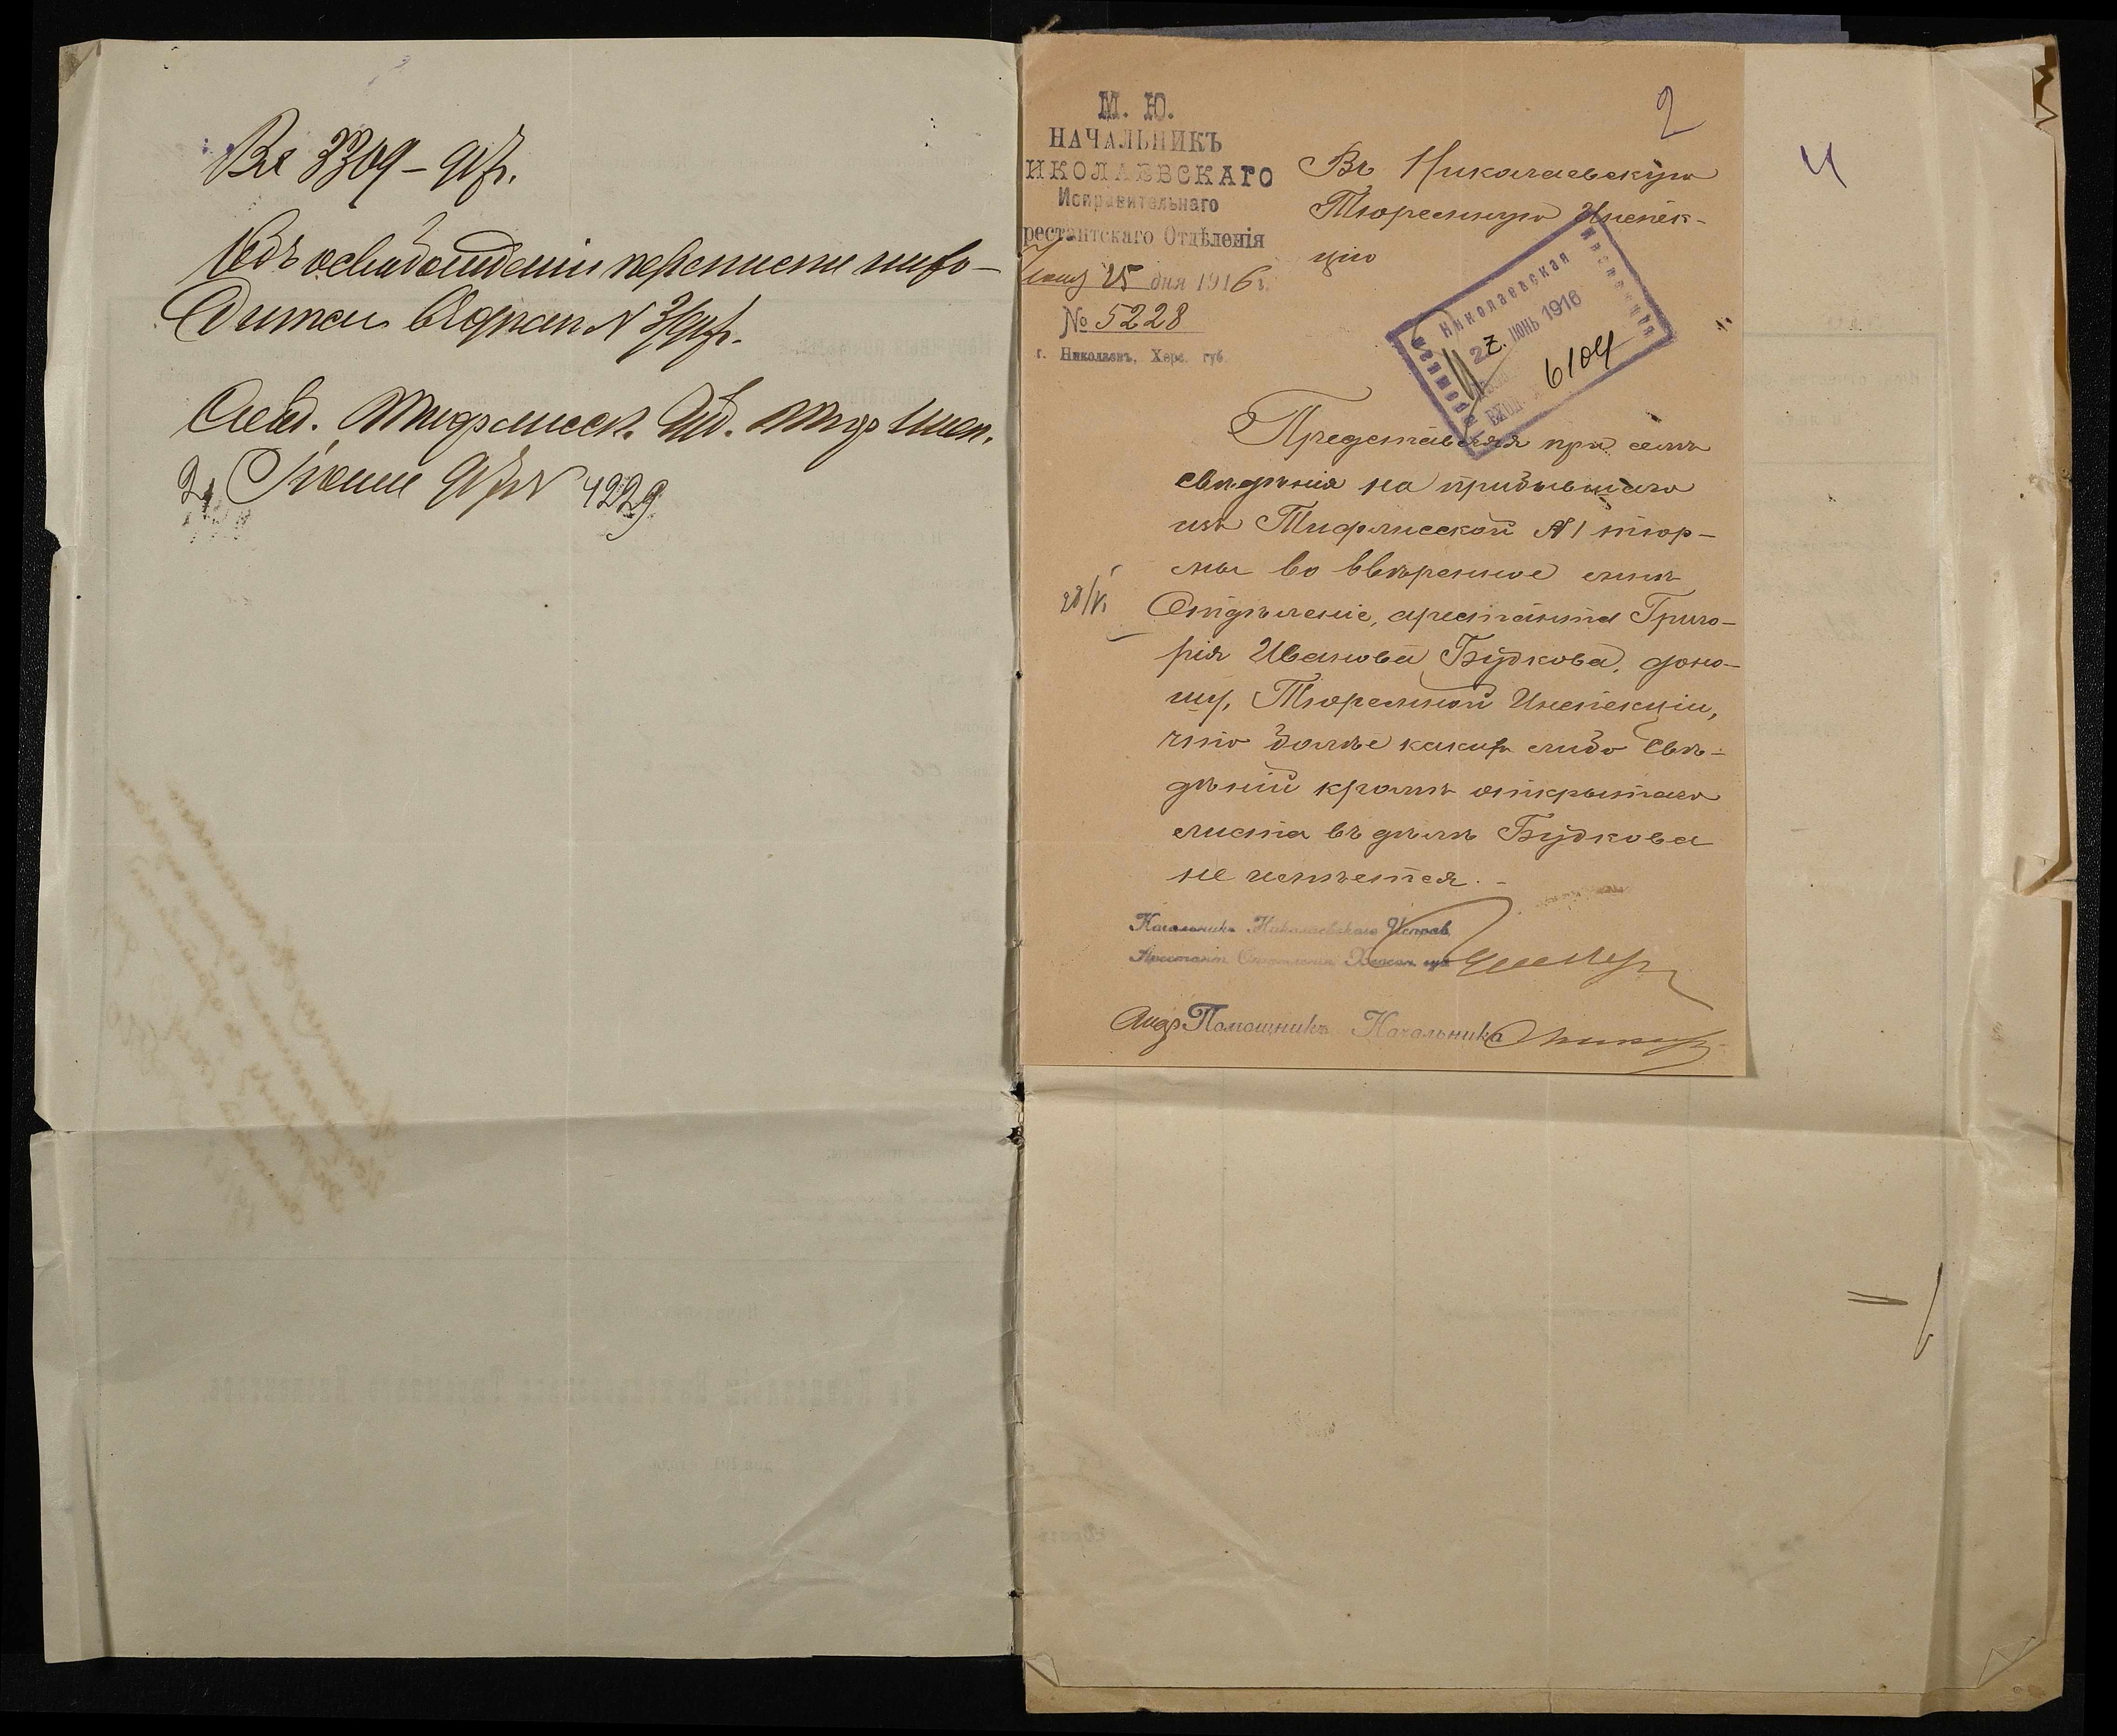 Вх 3309 – 916 г.
Объ освобожденіи переписки
Тифлисск. Губ. Тюр. Инсп.
2 Іюня 916 № 4229
2
4
М. Ю.
НАЧАЛЬНИКЪ
НИКОЛАЕВСКАГО
Исправительнаго
рестантскаго Отдѣленія
Іюня 25 дня 1916 г.
№ 5228
г. Николаевъ, Херс. губ.
Въ Николаевскую
Тюремную Инспек-
цію
Николаевская
Тюремная
Инспекція
ІЮНЬ 1916
ВХОД. 6104
Представляя при семъ
свѣдѣнія на прибывшаго
изъ Тифлисской № 1 тюр-
мы во ввѣренное мнѣ
Отдѣленіе, арестанта Григо-
рія Иванова Будкова, доно-
шу, Тюремной Инспекціи,
что болѣе какихъ либо свѣ-
дѣній кромѣ открытаго
листа въ дѣлѣ Будкова
не имѣется.
28/VI
Начальникъ Николаевскаго Исправ.
Арестант. Отдѣленія Херсон. губ.
Помощникъ Начальника